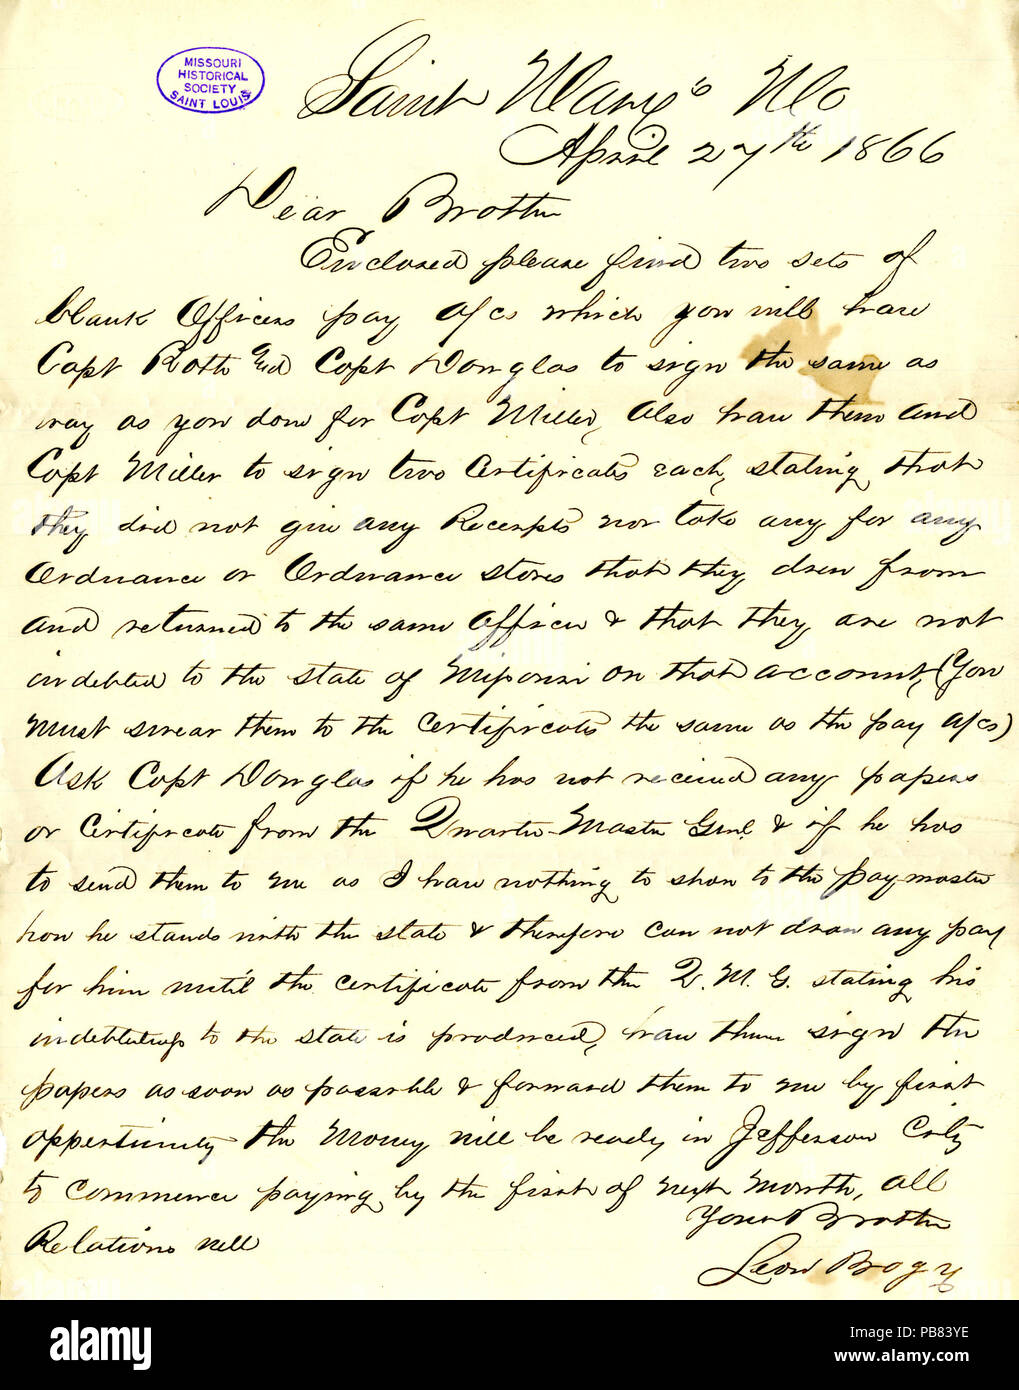 MISSOURI
HISTORICAL
SOCIETY
SAINT LOUIS
Saint Marys Mo
April 27th 1866
Dear Brother
Enclosed please find two sets of
blank Officers pay a/cs which you will have
Capt Roth and Capt Douglas to sign the same as
way as you done for Capt Miller, Also have them and
Capt Miller to sign two Certificates each, stating that
they did not give any Receipts nor take any for any
Ordnance or Ordnance stores that they drew from
and returned to the same Officer & that they are not
indebted to the state of Missouri on that account, (You
must swear them to the Certificates the same as the pay a/cs)
Ask Capt Douglas if he has not received any papers
or Certificate from the Quarter Master Genl. & if he has
to send them to me as I have nothing to show to the paymaster
how he stands with the state & therefore can not draw any pay
for him until the certificate from the Q. M. G. stating his
indebtedness to the state is produced, have them sign the
papers as soon as possible & forward them to me by first
oppertunity the Money will be ready in Jefferson City
to commence paying by the first of next Month, all
Relations well
Your Brother
Leon Bogy
alamy
Image ID: PB83YE
www.alamy.com